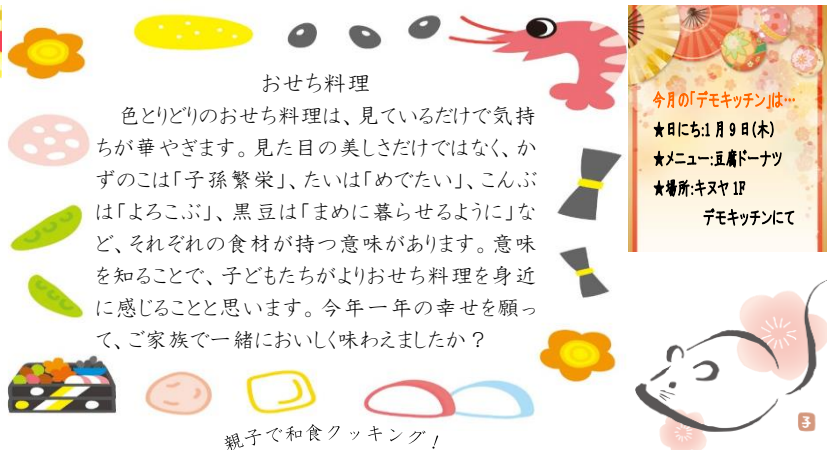 おせち料理
　色とりどりのおせち料理は、見ているだけで気持
ちが華やぎます。見た目の美しさだけではなく、か
ずのこは「子孫繁栄」、たいは「めでたい」、こんぶ
は「よろこぶ」、黒豆は「まめに暮らせるように」な
ど、それぞれの食材が持つ意味があります。意味
を知ることで、子どもたちがよりおせち料理を身近
に感じることと思います。今年一年の幸せを願っ
て、ご家族で一緒においしく味わえましたか？
親子で和食クッキング！
今月の「デモキッチン」は…
★日にち:1月9日(木)
★メニュー:豆腐ドーナツ
★場所:キヌヤ 1F
デモキッチンにて
子